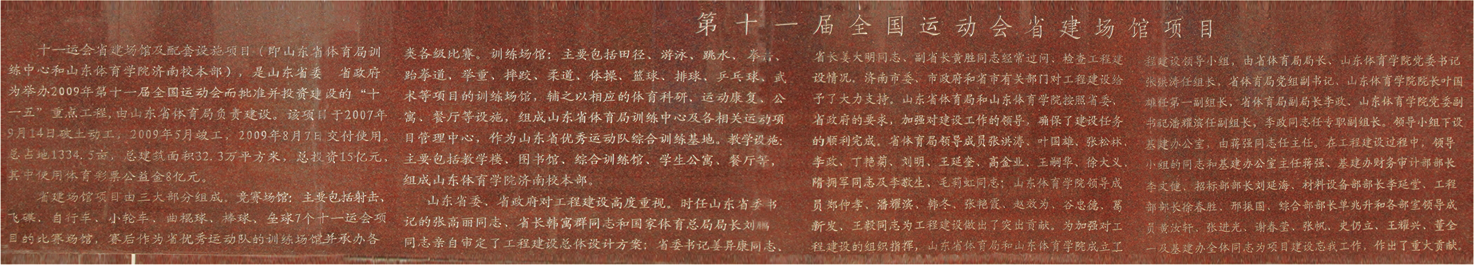 第十一届全国运动会省建场馆项目
十一运会省建场馆及配套设施项目（即山东省体育局训
练中心和山东体育学院济南校本部），是山东省委 省政府
为举办2009年第十一届全国运动会而批准并投资建设的“十
一五”重点工程，由山东省体育局负责建设。该项目于2007年
9月14日破土动工，2009年5月竣工，2009年8月7日交付使用。
总占地1334.5亩，总建筑面积32.3万平方米，总投资15亿元，
其中使用体育彩票公益金8亿元。
省建场馆项目由三大部分组成。竞赛场馆：主要包括射击、
飞碟、自行车、小轮车、曲棍球、棒球、垒球7个十一运会项
目的比赛场馆，赛后作为省优秀运动队的训练场馆并承办各
类各级比赛。训练场馆：主要包括田径、游泳、跳水、拳击、
跆拳道、举重、摔跤、柔道、体操、篮球、排球、乒乓球、武
术等项目的训练场馆，辅之以相应的体育科研、运动康复、公
寓、餐厅等设施，组成山东省体育局训练中心及各相关运动项
目管理中心，作为山东省优秀运动队综合训练基地。教学设施：
主要包括教学楼、图书馆、综合训练馆、学生公寓、餐厅等，
组成山东体育学院济南校本部。
山东省委、省政府对工程建设高度重视。时任山东省委书
记的张高丽同志、省长韩寓群同志和国家体育总局局长刘鹏
同志亲自审定了工程建设总体设计方案；省委书记姜异康同志、
省长姜大明同志、副省长黄胜同志经常过问，检查工程建
设情况，济南市委、市政府和省市有关部门对工程建设给
予了大力支持。山东省体育局和山东体育学院按照省委、
省政府的要求，加强对建设工作的领导，确保了建设任务
的顺利完成。省体育局领导成员张洪涛、叶国雄、张松林、
李政、丁艳菊、刘明、王延奎、高金业、王嗣华、徐大义、
隋拥军同志及李敦生、毛莉虹同志；山东体育学院领导成
员郑仲孝、潘耀滨、韩冬、张艳霞、赵效为、谷忠德、葛
新发、王毅同志为工程建设做出了突出贡献。为加强对工
程建设的组织指挥，山东省体育局和山东体育学院成立工
程建设领导小组，由省体育局局长、山东体育学院党委书记
张洪涛任组长，省体育局党组副书记、山东体育学院院长叶国
雄任第一副组长，省体育局副局长李政、山东体育学院党委副
书记潘耀滨任副组长，李政同志任专职副组长。领导小组下设
基建办公室，由蒋强同志任主任。在工程建设过程中，领导
小组的同志和基建办公室主任蒋强、基建办财务审计部部长
李文健、招标部部长刘延海、材料设备部部长李延堂、工程
部部长徐春胜、邢振国、综合部部长单兆升和各部室领导成
员黄汝轩、张进光、谢春莹、张帆、史仍立、王耀兴、董全
一及基建办全体同志为项目建设忘我工作，作出了重大贡献。